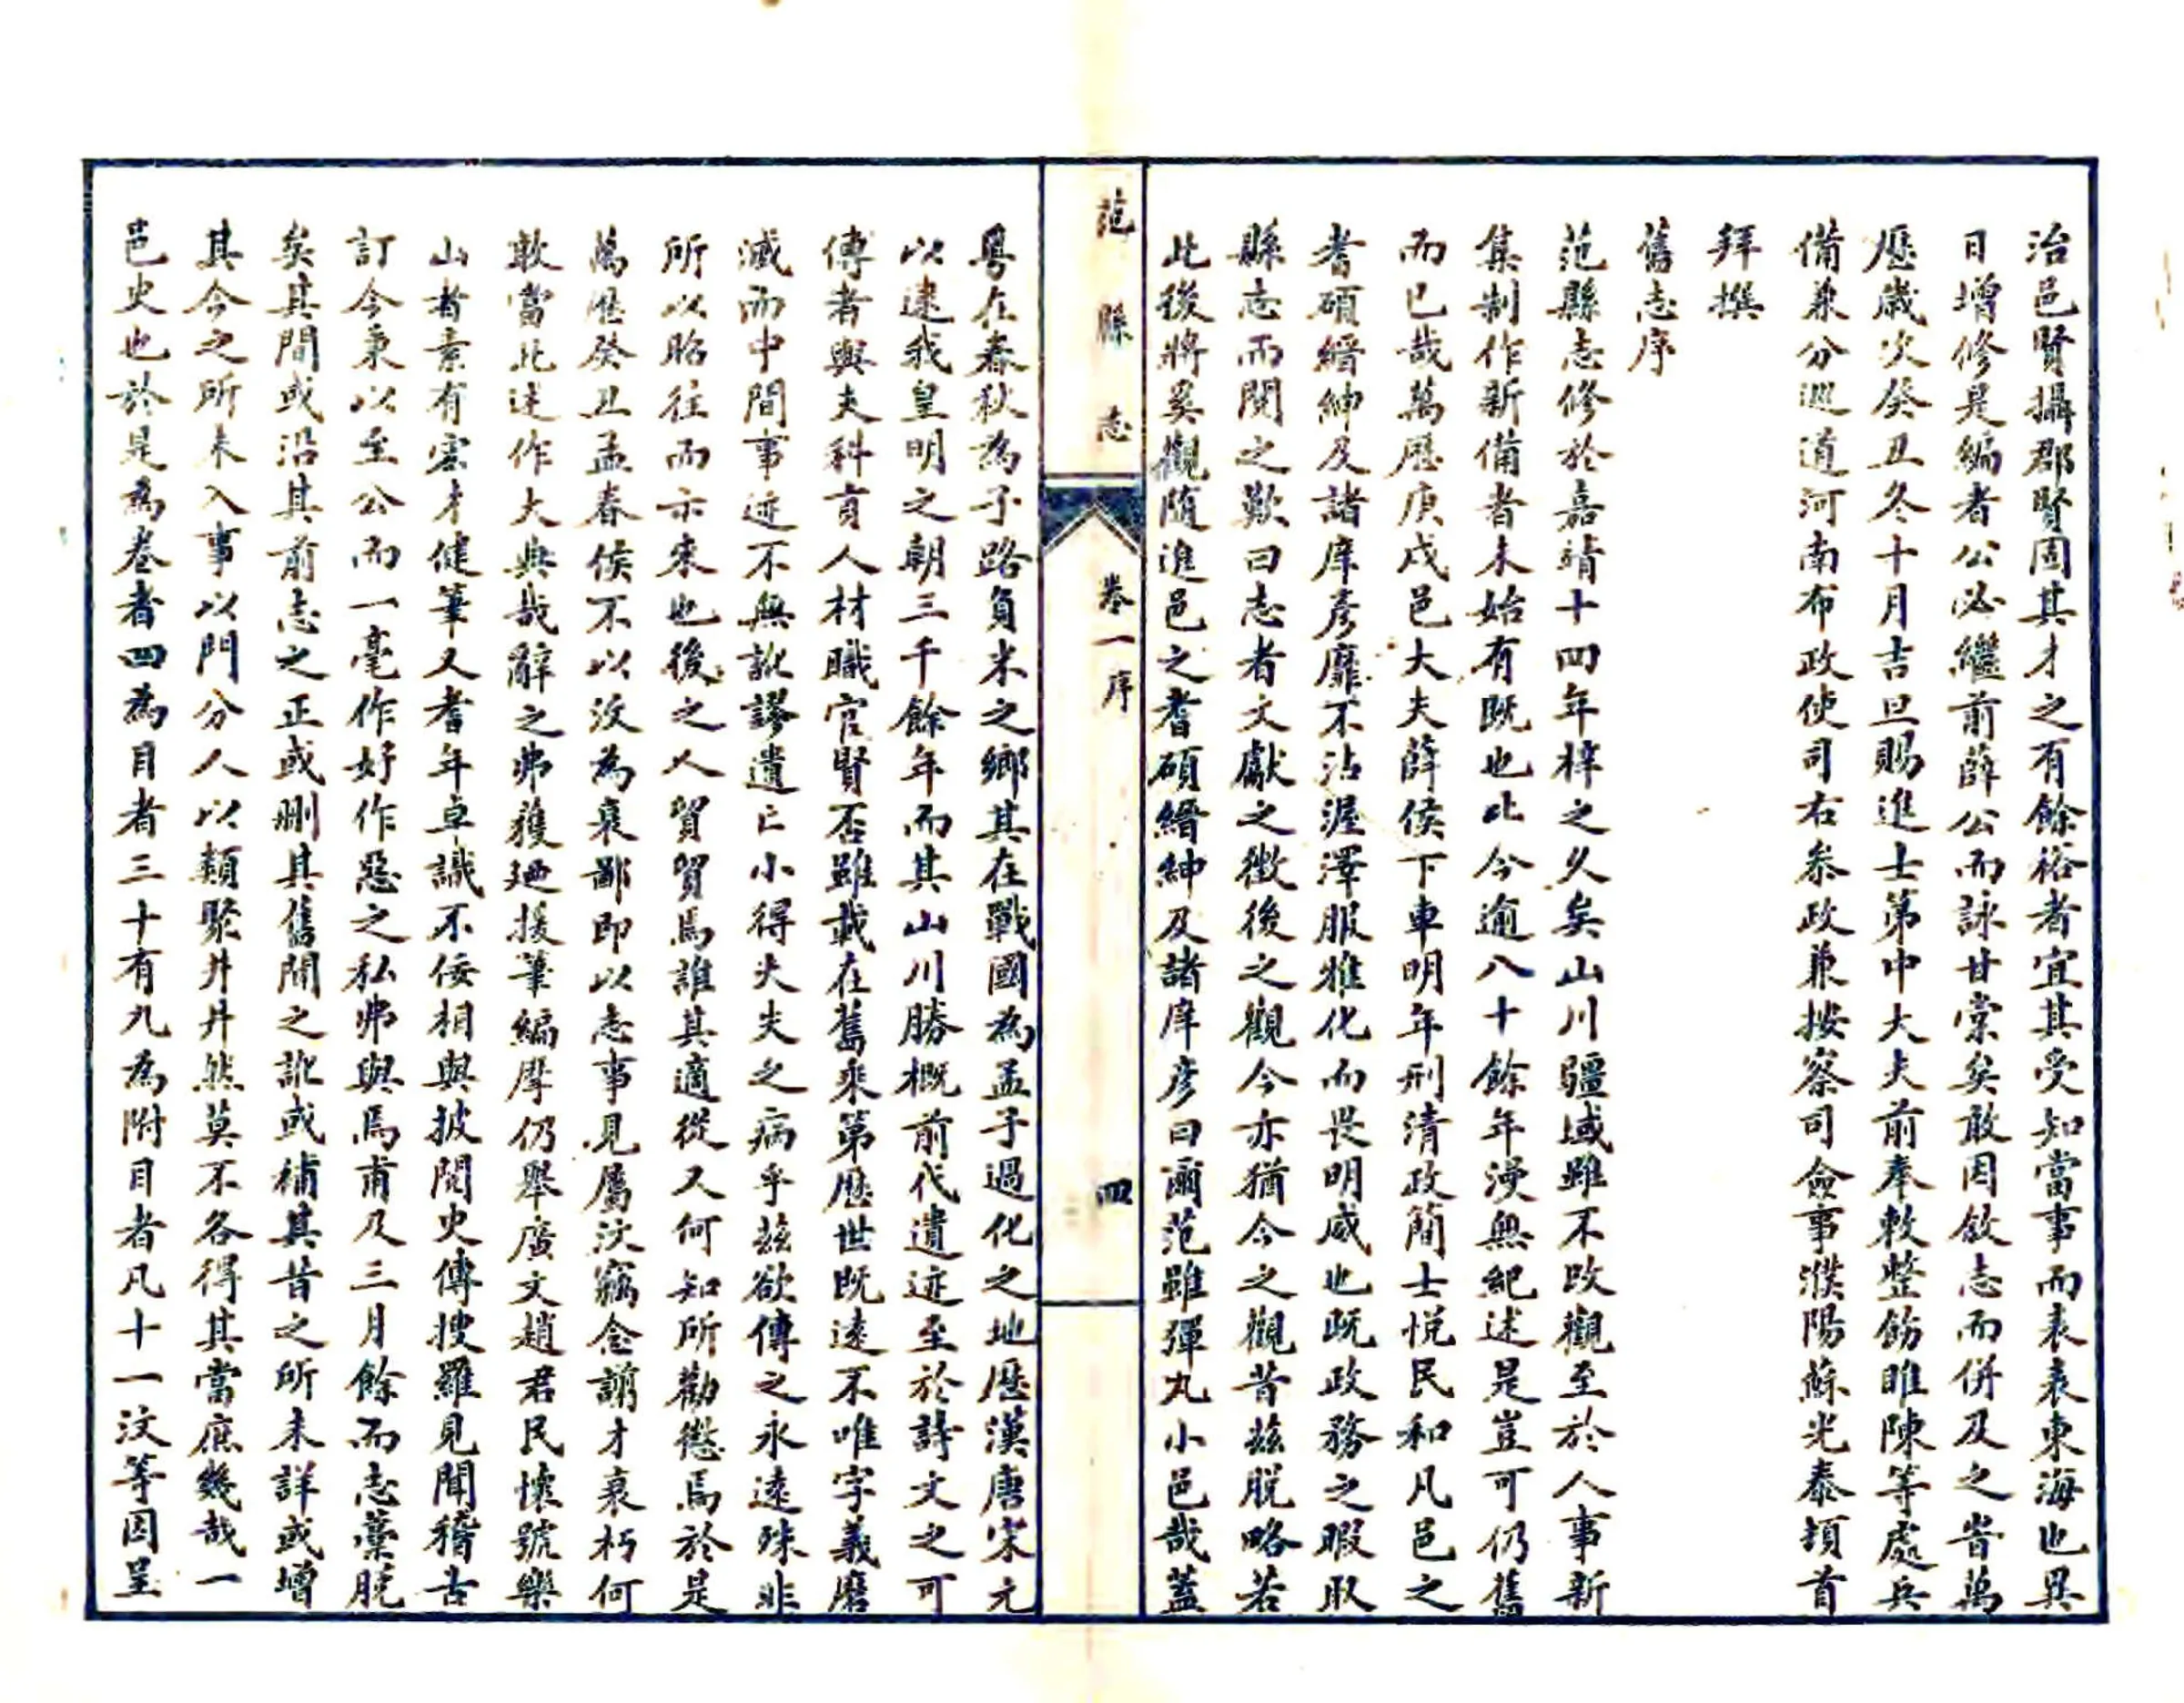 治邑賢攝郡賢固其才之有餘裕者宜其受知當事而表表東海也異
日增修是編者公必繼前薛公而詠甘棠矣敢因敘志而併及之旹萬
歷歲次癸丑冬十月吉旦賜進士第中大夫前奉敕整飭睢陳等處兵
備兼分巡道河南布政使司右叅政兼按察司僉事濮陽蘇光泰頓首
拜撰
舊志序
范縣志修於嘉靖十四年梓之久矣山川疆域雖不改觀至於人事新
集制作新備者未始有既也比今逾八十餘年漫無紀述是豈可仍舊
而已哉萬歷庚戌邑大夫薛侯下車明年刑清政簡士悅民和凡邑之
耆碩縉紳及諸庠彥靡不沾渥澤服雅化而畏明威也既政務之暇取
縣志而閱之歎曰志者文獻之徵後之觀今亦猶今之觀昔茲脫略若
此後將奚觀隨進邑之耆碩縉紳及諸庠彥曰爾范雖彈丸小邑哉蓋
范縣志 卷一序 四
粵在春秋為子路負米之鄉其在戰國為孟子過化之地歷漢唐宋元
以逮我皇明之朝三千餘年而其山川勝概前代遺迹至於詩文之可
傳者與夫科貢人材職官賢否雖載在舊乘第歷世既遠不唯字義磨
滅而中間事迹不無訛謬遺亡小得大失之病乎茲欲傳之永遠殊非
所以昭往而示來也後之人貿貿焉誰其適從又何知所勸懲焉於是
萬歷癸丑孟春侯不以汶為衰鄙即以志事見屬汶竊念謭才衰朽何
敢當此述作大典哉辭之弗獲迺援筆編摩仍舉廣文趙君民懷號樂
山者素有宏才健筆又耆年卓識不佞相與披閱史傳搜羅見聞稽古
訂今秉以至公而一毫作好作惡之私弗與焉甫及三月餘而志藁脫
矣其間或沿其前志之正或刪其舊聞之訛或補其昔之所未詳或增
其今之所未入事以門分人以類聚井井然莫不各得其當庶幾哉一
邑史也於是為卷者四為目者三十有九為附目者凡十一汶等因呈